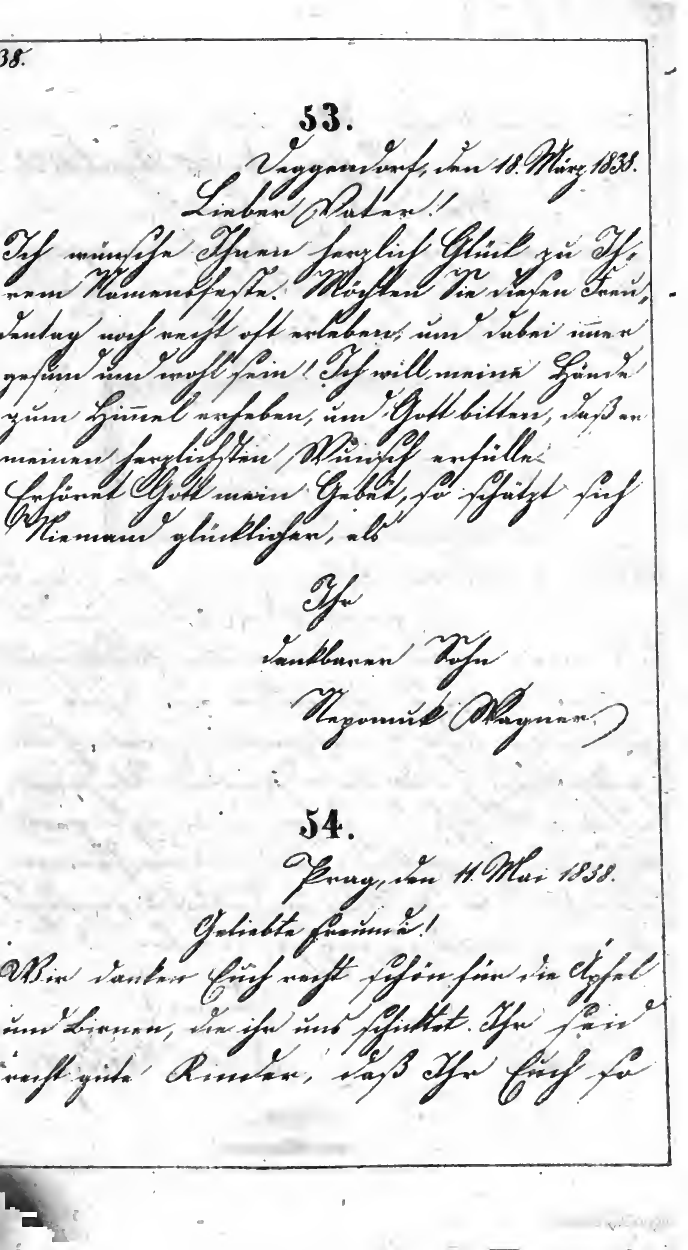 38.
53.
Deggendorf, den 18. März 1838.
Lieber Vater!
Ich wünsche Ihnen herzlich Glück zu Ih-
rem Namensfeste. Möchten Sie diesen Freu-
dentag noch recht oft erleben, und dabei im̄er
gesund und wohl sein! Ich will meine Hände
zum Him̄el erheben, und Gott bitten, daß er
meinen herzlichsten Wunsch erfülle.
Erhöret Gott mein Gebet, so schätzt sich
Niemand glücklicher, als
Ihr
dankbarer Sohn
Nepomuk Wagner.
54.
Prag, den 11. Mai 1838.
Geliebte Freunde!
Wir danken Euch recht schön für die Äpfel
und Birnen, die ihr uns schicktet. Ihr seid
recht gute Kinder, daß Ihr Euch so